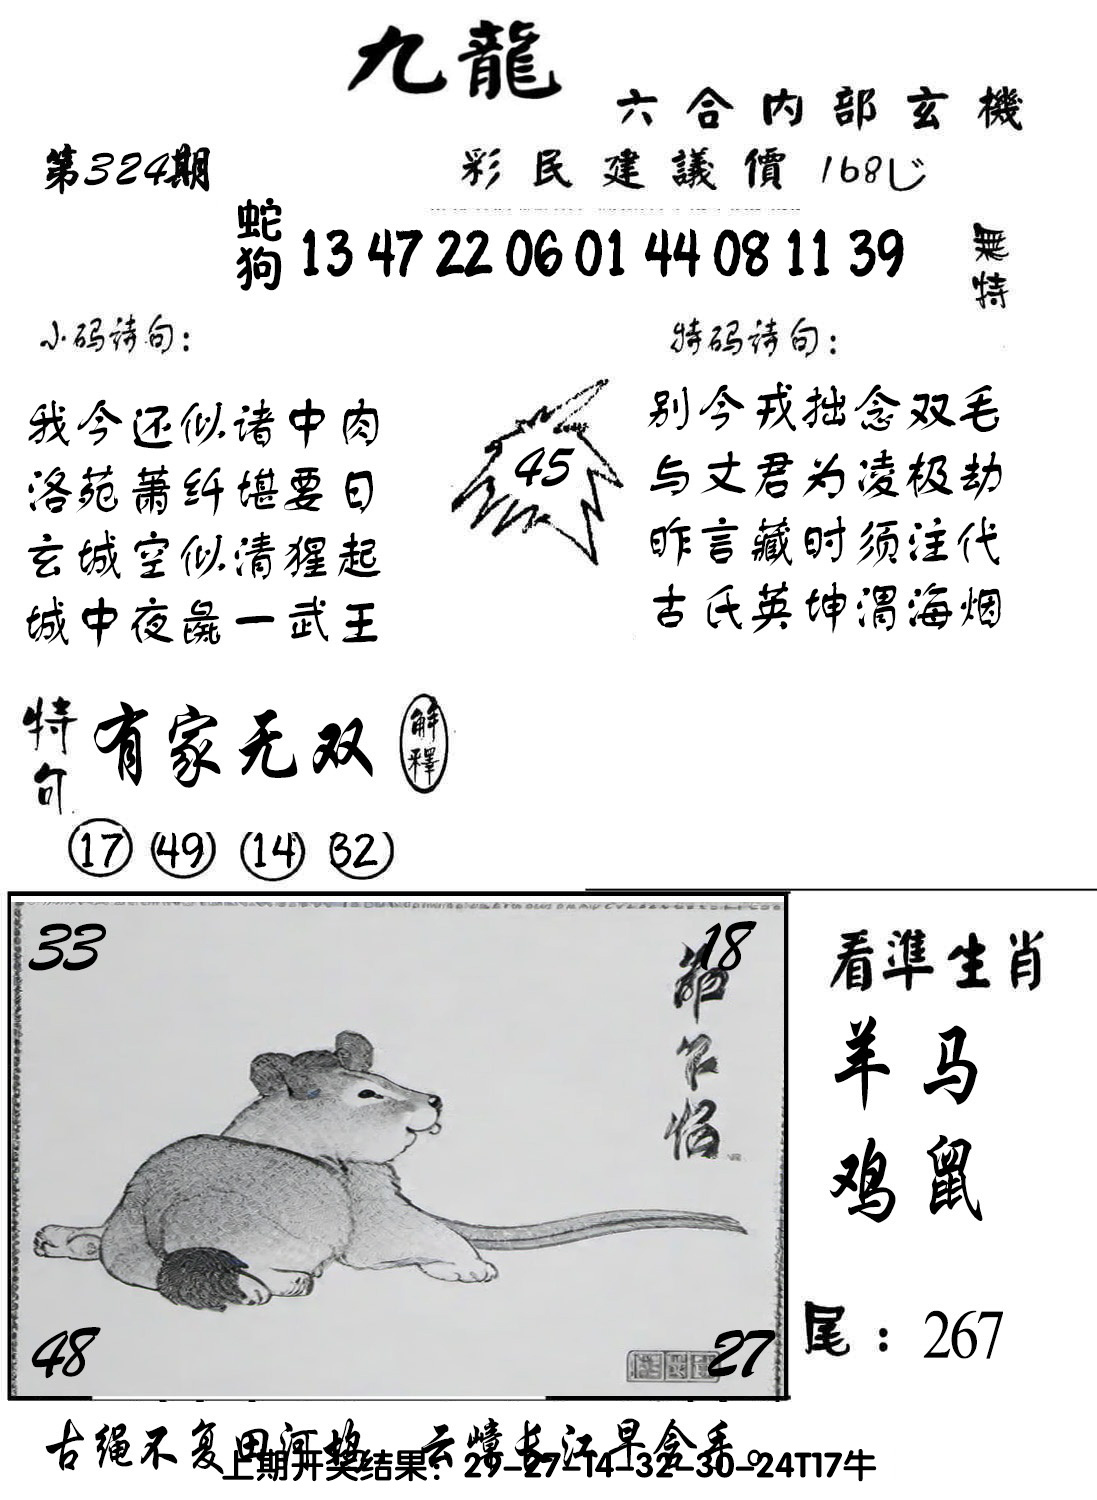 九龍
六合内部玄機
第324期
彩民建議價168
蛇狗
13 47 22 06 01 44 08 11 39
無特
小码诗句：
特码诗句：
我今还似诸中肉
洛苑萧纤堪要日
玄城空似清猩起
城中夜彘一武王
45
别今戎拙念双毛
与丈君为凌极劫
昨言藏时须注代
古氏英坤渭海烟
特句
有家无双
解釋
17 49 14 32
33
18
48
27
看準生肖
羊马
鸡鼠
尾：267
古绳不复田河 云嶂长江早含
上期开奖结果：29-27-14-32-30-24T17牛